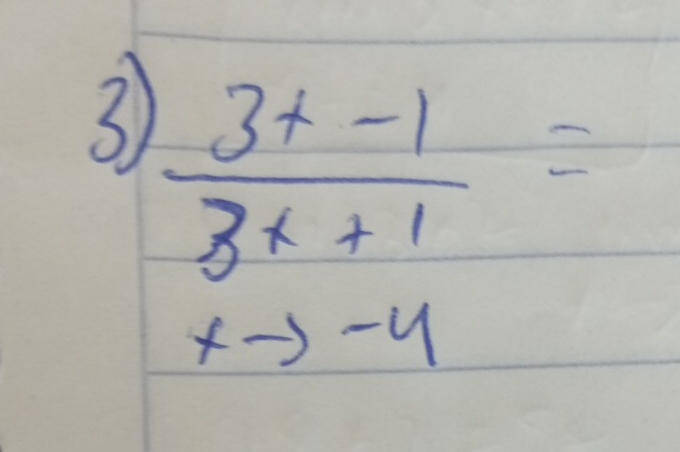 3) 3x - 1 =
3x + 1
x → -4